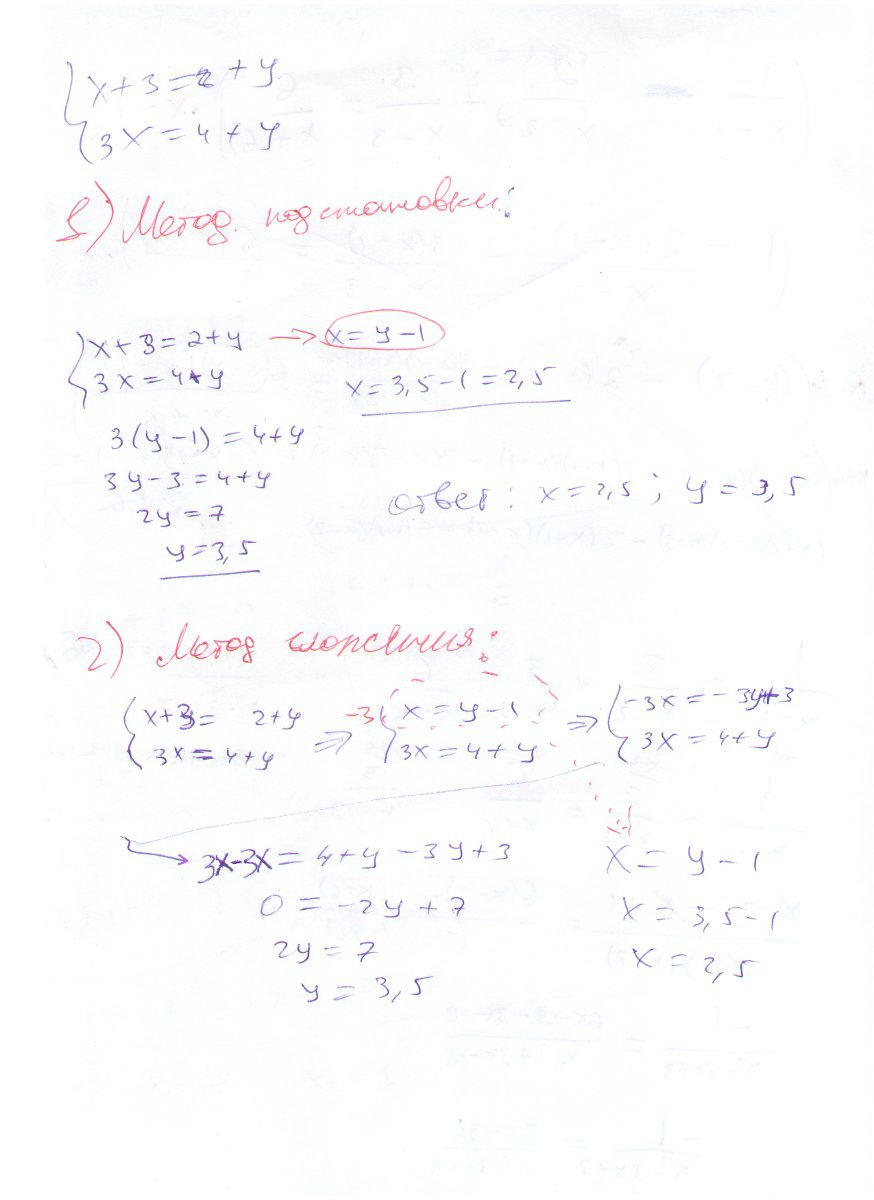 x+3=2+y
3x=4+y
1) Метод подстановки:
x+3=2+y → x=y-1
3x=4+y
x=3,5-1=2,5
3(y-1)=4+y
3y-3=4+y
2y=7
y=3,5
ответ: x=2,5; y=3,5
2) Метод сложения:
x+3= 2+y ⇒ -3 x=y-1 ⇒ -3x=-3y+3
3x=4+y 3x=4+y 3x=4+y
3x-3x=4+y-3y+3
0=-2y+7
2y=7
y=3,5
x=y-1
x=3,5-1
x=2,5